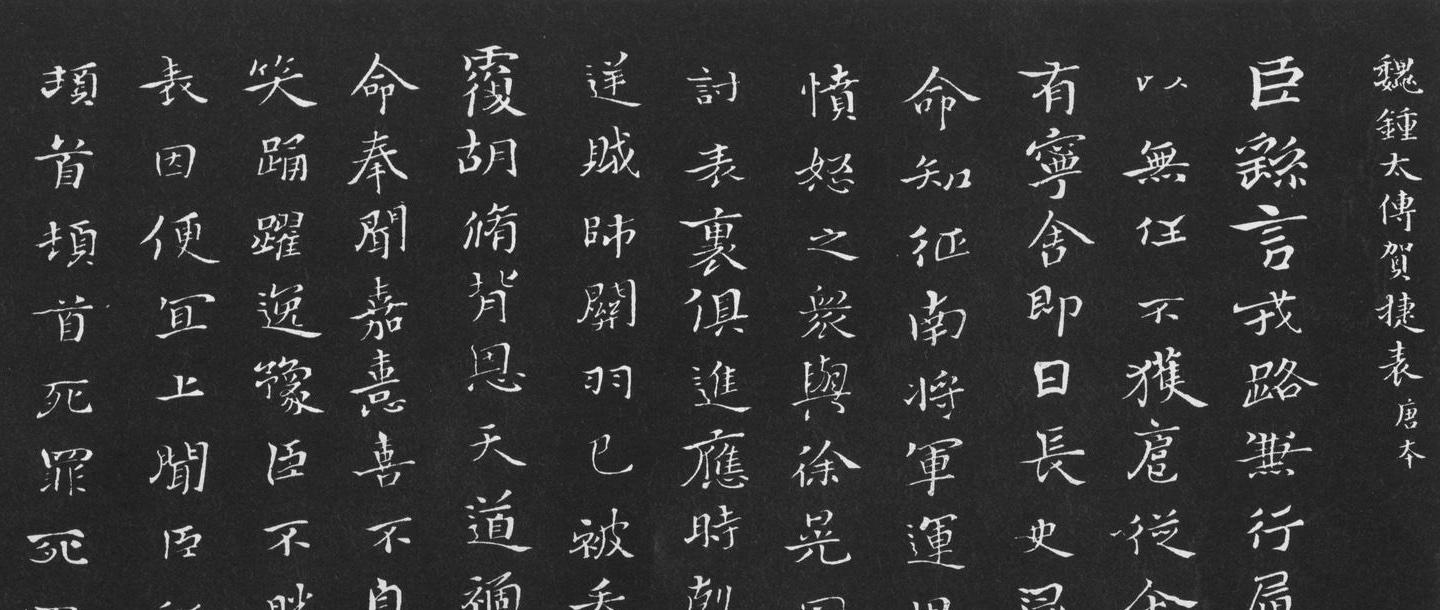 魏鍾太傅賀捷表唐本
臣繇言戎路兼行
以無任不獲扈從企
有寧舍即日長史
命知征南將軍運
憤怒之衆與徐晃
討表裏俱進應時剋
逆賊帥關羽已被
覆胡脩背恩天道禍
命奉聞嘉憙喜不自
笑踊躍逸豫臣不勝
表因便宜上聞臣
頓首頓首死罪死